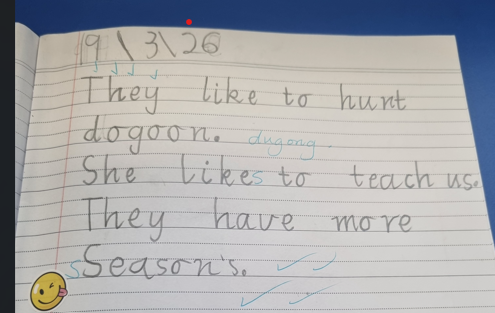 19 \ 3 \ 26
They like to hunt
dogoon. dugong.
She likes to teach us.
They have more
sSeason's.